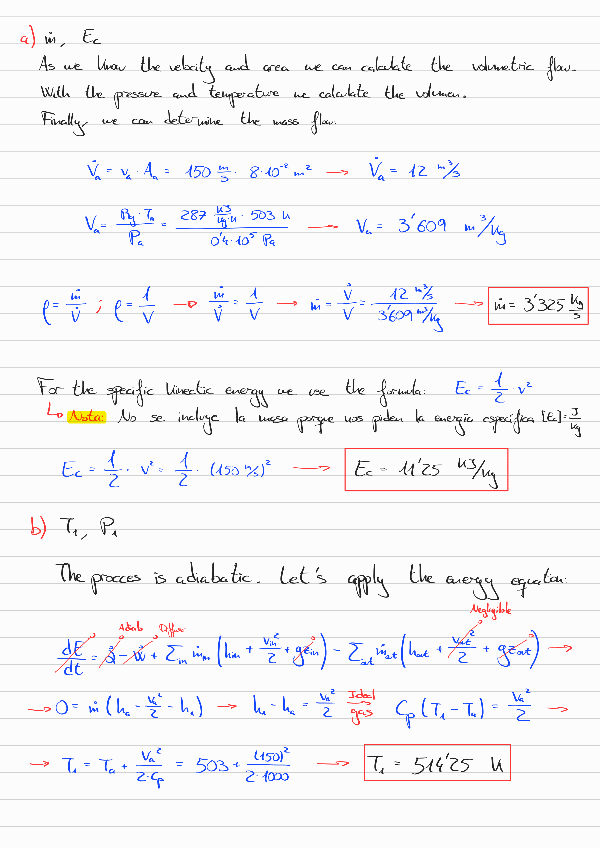 a) ṁ, Ec
As we know the velocity and area we can calculate the volumetric flow.
With the pressure and temperature we calculate the volumen.
Finally, we can determine the mass flow.
V̇a = va · Aa = 150 m/s · 8·10⁻² m² → V̇a = 12 m³/s
Va = Rg · Ta / Pa = 287 KJ/kg·K · 503 K / 0'4·10⁵ Pa → Va = 3'609 m³/kg
ρ = ṁ/V̇ ; ρ = 1/V → ṁ/V̇ = 1/V → ṁ = V̇/V = 12 m³/s / 3'609 m³/kg → ṁ = 3'325 kg/s
For the specific kinectic energy we use the formula: Ec = 1/2 · v²
↳ Nota: No se incluye la masa porque nos piden la energía específica [Ec] = J/kg
Ec = 1/2 · v² = 1/2 · (150 m/s)² → Ec = 11'25 KJ/kg
b) T₁, P₁
The procces is adiabatic. Let's apply the energy equation:
Adiab Difusor Negligible
dE/dt = Q̇ - Ẇ + Σin ṁin (hin + vin²/2 + gzin) - Σout ṁout (hout + vout²/2 + gzout) →
→ 0 = ṁ (ha - va²/2 - h₁) → h₁ - ha = va²/2 Ideal gas → Cp (T₁ - Ta) = va²/2 →
→ T₁ = Ta + va²/2·Cp = 503 + (150)²/2·1000 → T₁ = 514'25 K